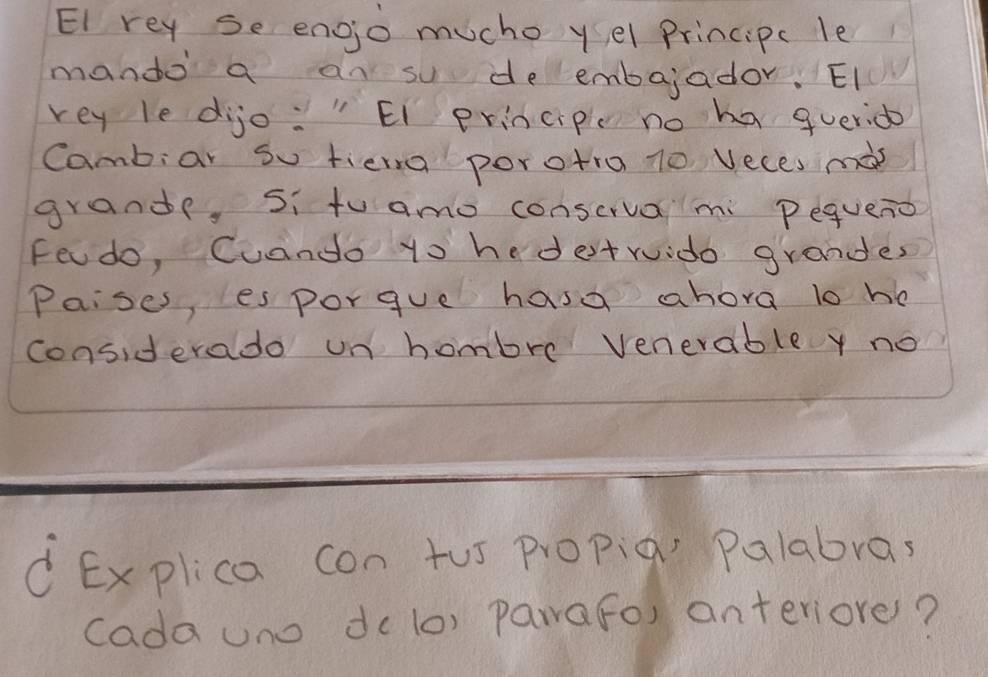 El rey se enojó mucho y el Principe le
mandó a an su de embajador. El
rey le dijo: "El principe no ha querido
Cambiar su tierra por otra 10 veces más
grande, Si tu amo conserva mi pequeño
Feudo, Cuando yo he destruido grandes
Paises, es porque hasa ahora lo he
considerado un hombre venerable y no
¿Explica con tus propias Palabras
cada uno de los parrafos anteriores?